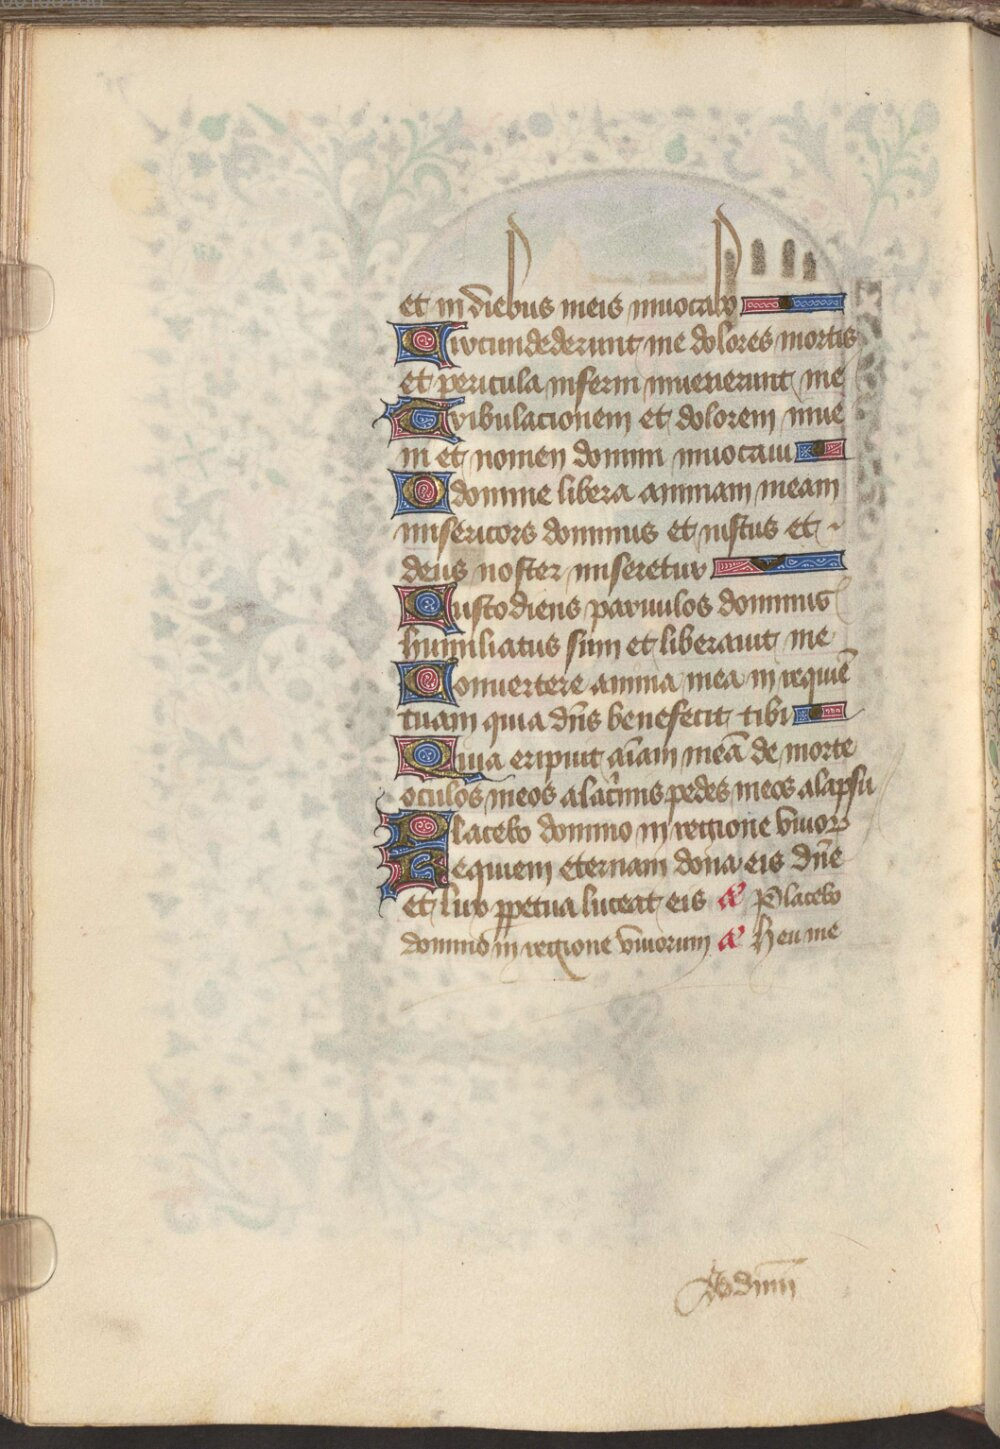 et in diebus meis inuocabo
Circundederunt me dolores mortis
et pericula inferni inuenerunt me
Tribulacionem et dolorem inue
ni et nomen domini inuocaui
O domine libera animam meam
misericors dominus et iustus et
deus noster miseretur
Custodiens paruulos dominus
humiliatus sum et liberauit me
Conuertere anima mea in requiē
tuam quia dn̄s benefecit tibi
Quia eripuit aīam meā de morte
oculos meos a lacrimis pedes meos a lapsu
Placebo domino in regione viuoꝝ
Requiem eternam dona eis dn̄e
et lux ꝑpetua luceat eis a᷒ Placebo
domino in regione viuorum a᷒ Heu me
Ad dnm